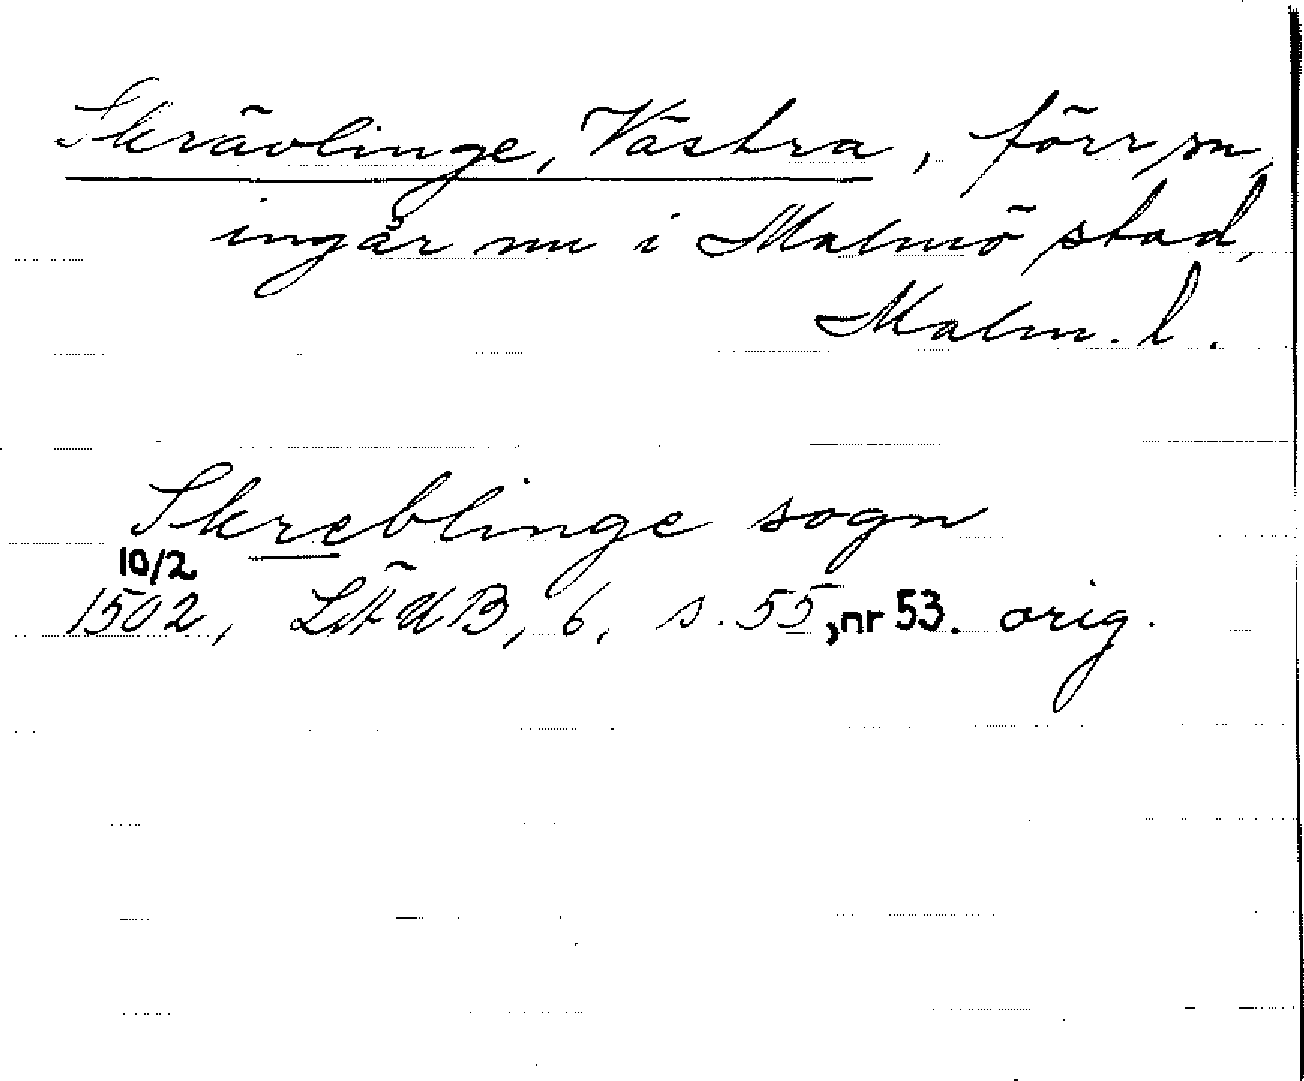 Skrävlinge, Västra, förr sn,
ingår nu i Malmö stad,
Malm. l.
Skreblinge sogn
10/2
1502, LÄUB, 6, s. 55, nr 53. orig.